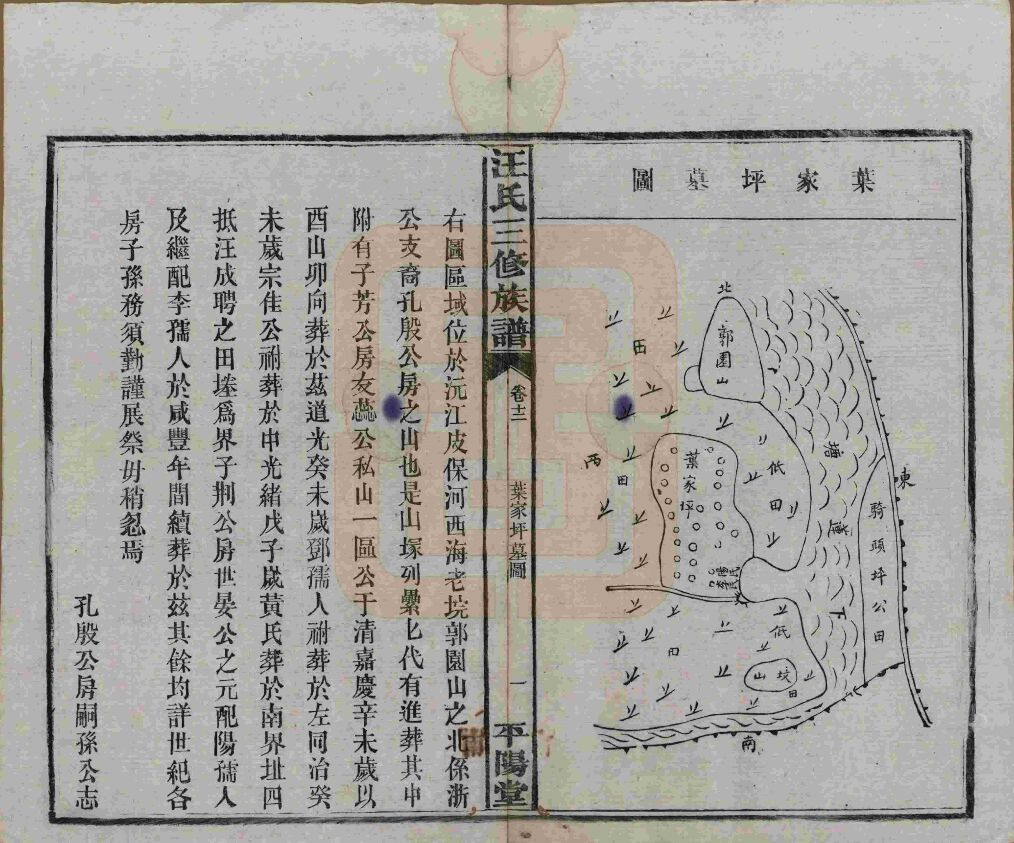 葉家坪墓圖
北
郭園山
田
西
葉家坪
田
低田
塘
廈
下
騎頭坪公田
東
低
田
坟山
田
南
汪氏三修族譜
卷十二
葉家坪墓圖
一
平陽堂
右圖區域位於沅江皮保河西海老垸郭園山之北係浙
公支裔孔殷公房之山也是山塚列纍七代有進葬其中
附有子芳公房友蕊公私山一區公于清嘉慶辛未歲以
酉山卯向葬於茲道光癸未歲鄧孺人祔葬於左同治癸
未歲宗佳公祔葬於中光緒戊子歲黃氏葬於南界址四
抵汪成聘之田塍爲界子荆公房世晏公之元配陽孺人
及繼配李孺人於咸豐年間續葬於茲其餘均詳世紀各
房子孫務須勤謹展祭毋稍忽焉
孔殷公房嗣孫公志